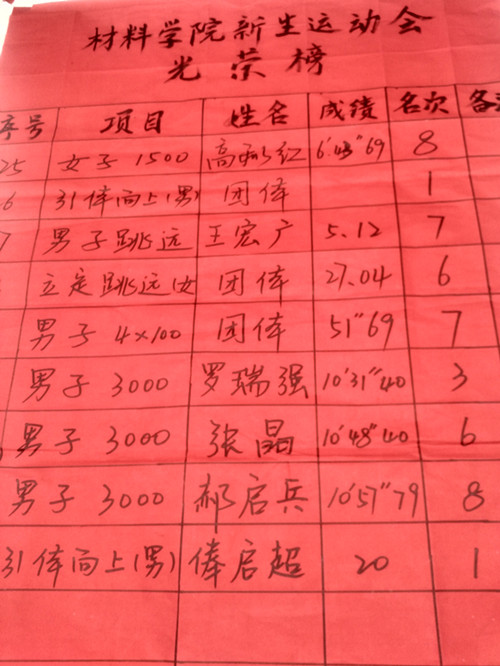 材料学院新生运动会
光荣榜
序号 项目 姓名 成绩 名次 备
25 女子1500 高 红 6'43"69 8
6 引体向上(男) 团体 1
7 男子跳远 王宏广 5.12 7
立定跳远(女 团体 27.04 6
男子4×100 团体 51"69 7
男子3000 罗瑞强 10'31"40 3
男子3000 张晶 10'48"40 6
男子3000 郝启兵 10'57"79 8
引体向上(男) 俸启超 20 1